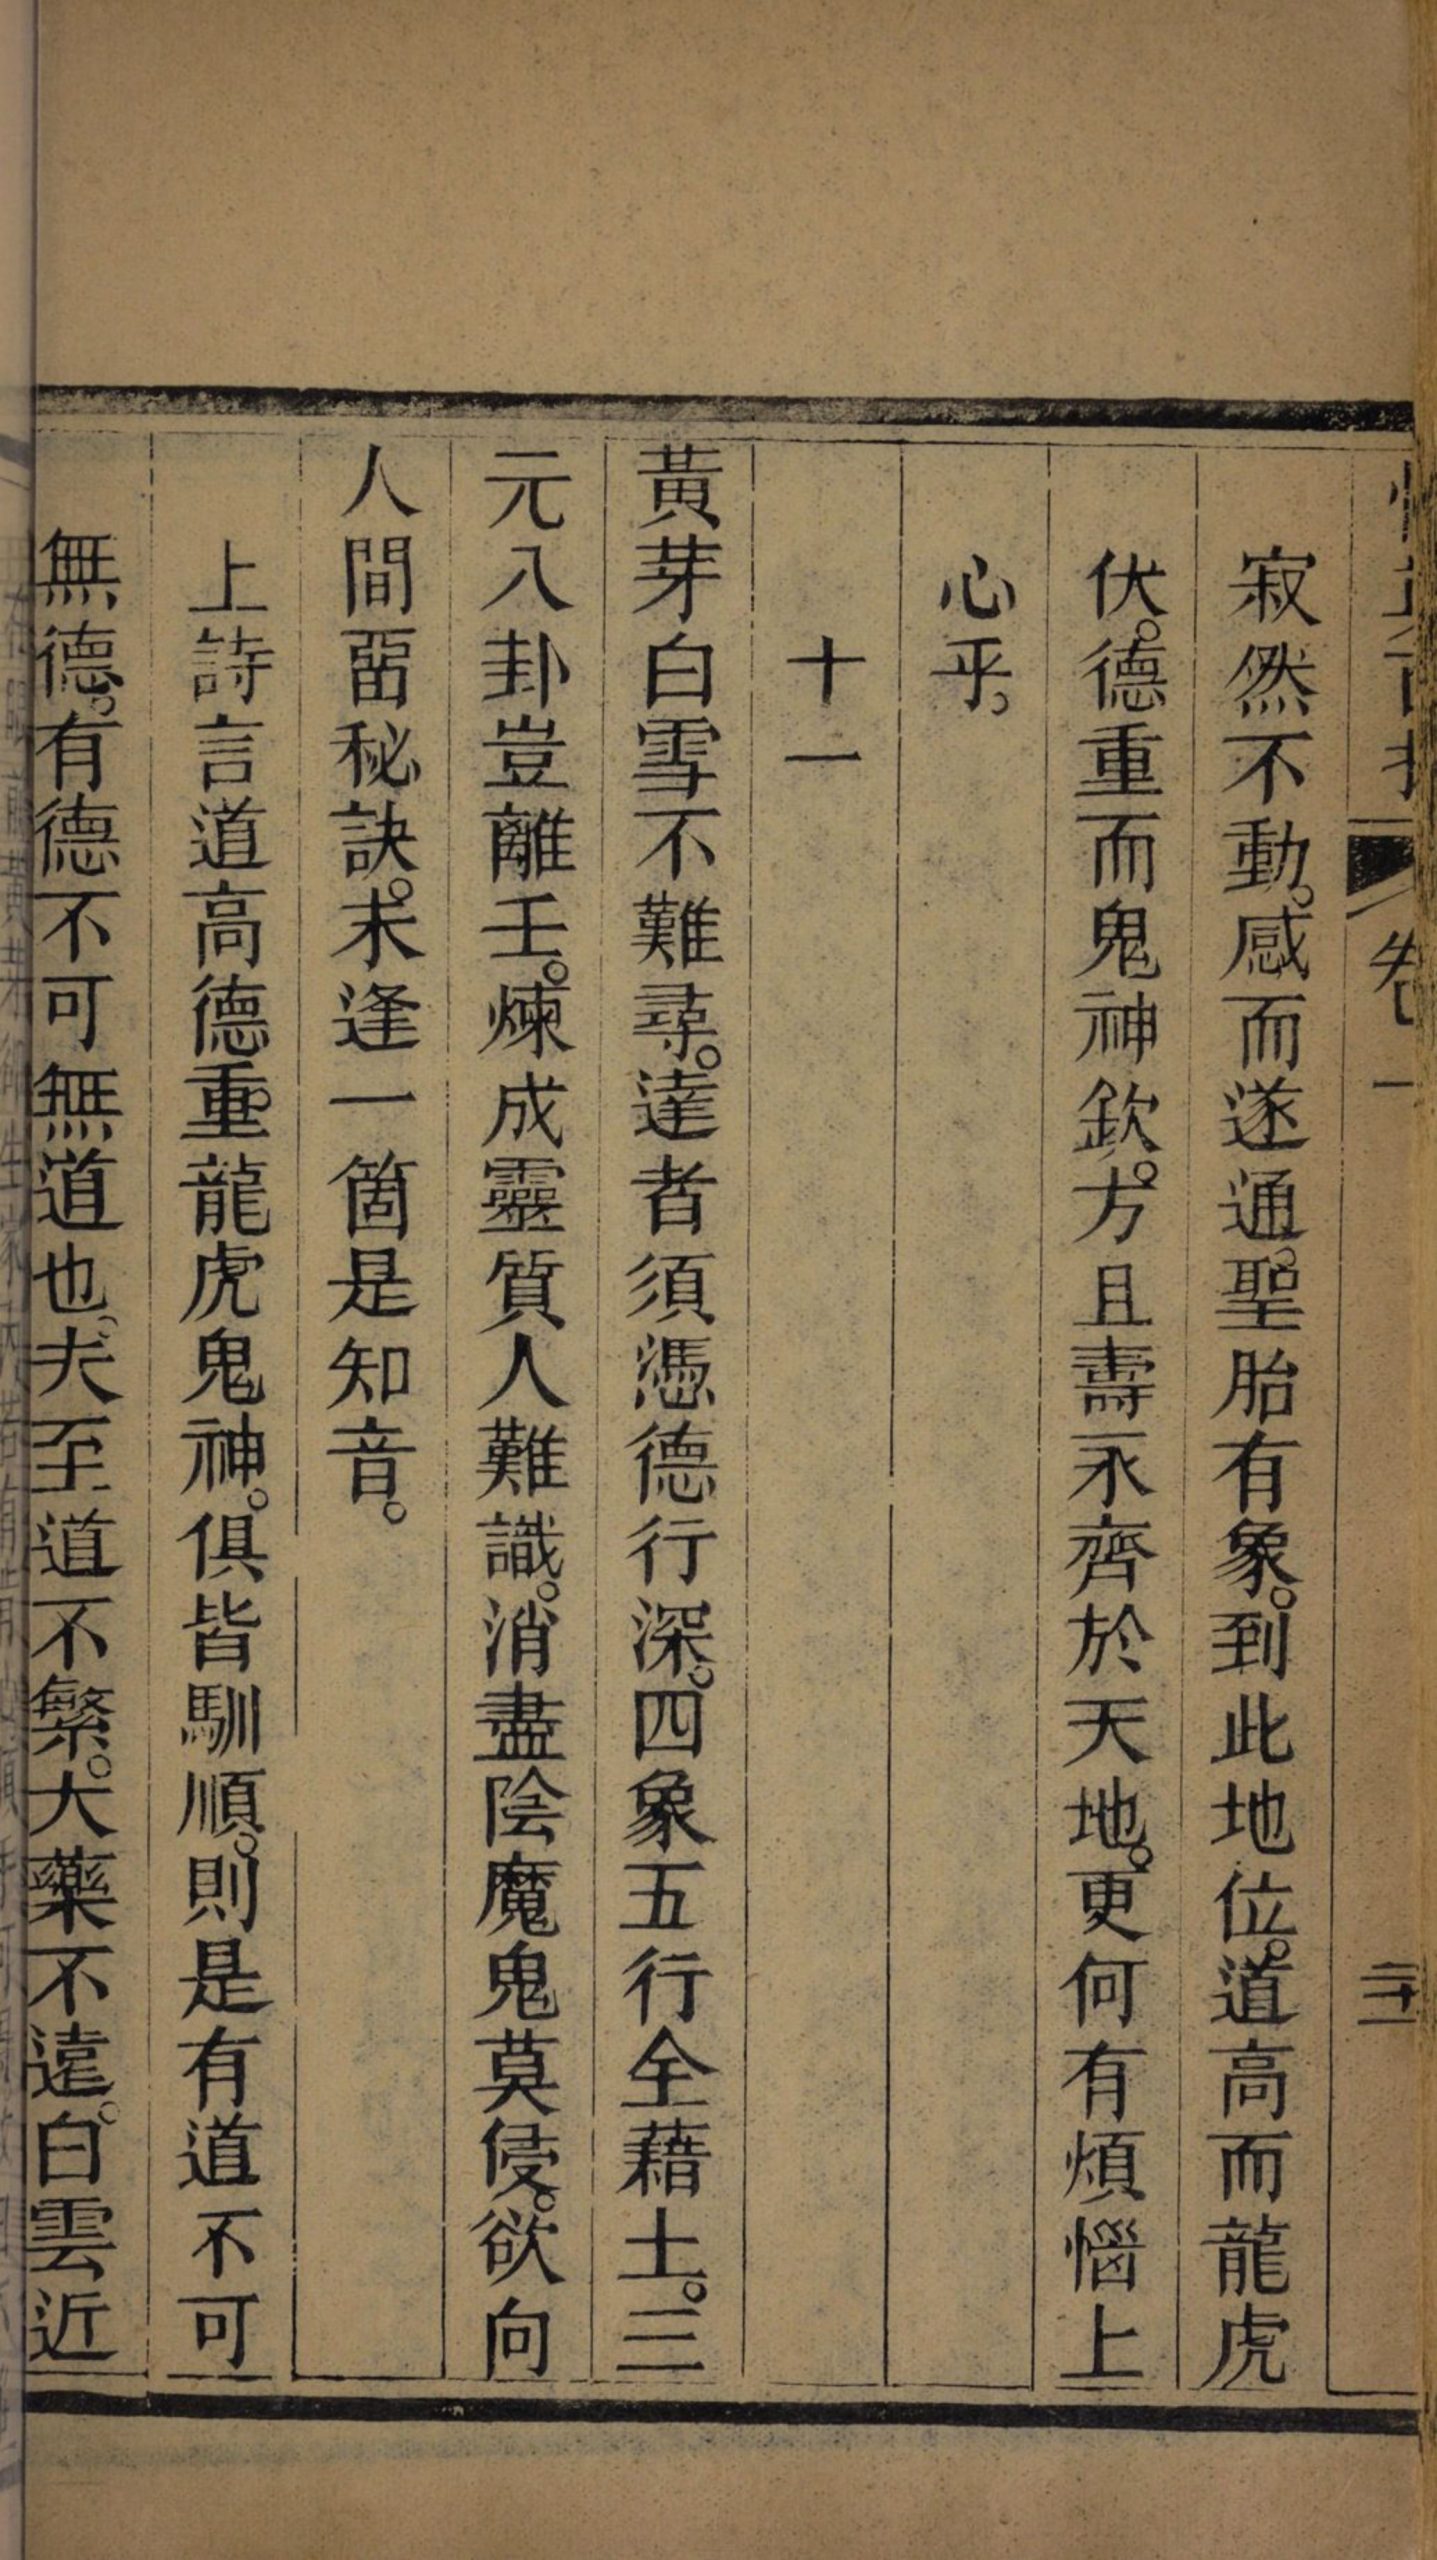 卷一
寂然不動。感而遂通。聖胎有象。到此地位。道高而龍虎
伏。德重而鬼神欽。方且壽永齊於天地。更何有煩惱上
心乎。
十一
黃芽白雪不難尋。達者須憑德行深。四象五行全藉土。三
元八卦豈離壬。煉成靈質人難識。消盡陰魔鬼莫侵。欲向
人間畱秘訣。未逢一箇是知音。
上詩言道高德重。龍虎鬼神。俱皆馴順。則是有道不可
無德。有德不可無道也。夫至道不繁。大藥不遠。白雲近